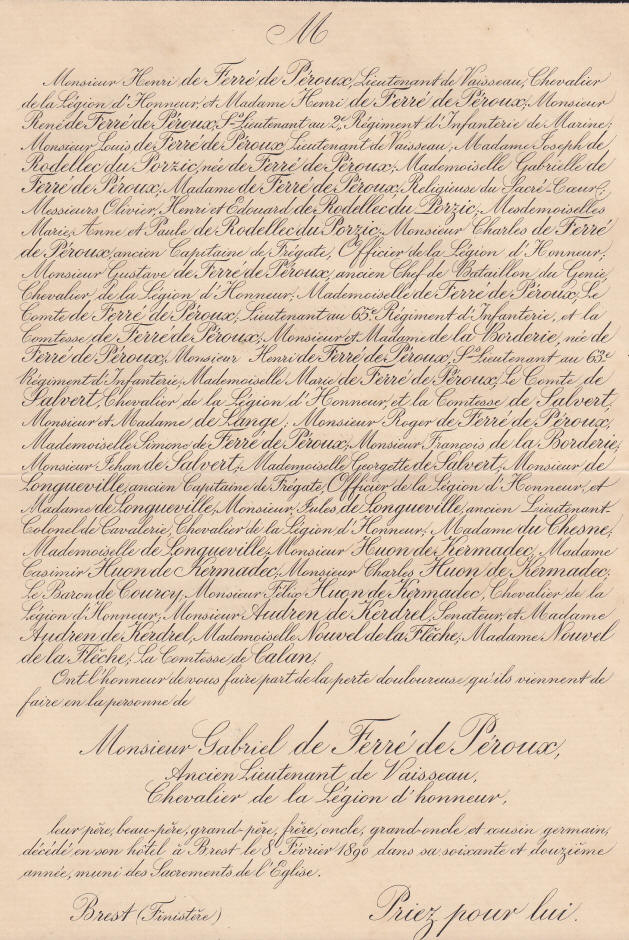 M
Monsieur Henri de Ferré de Péroux, Lieutenant de Vaisseau, Chevalier
de la Légion d'Honneur, et Madame Henri de Ferré de Péroux; Monsieur
René de Ferré de Péroux, Ss Lieutenant au 2e Régiment d'Infanterie de Marine;
Monsieur Louis de Ferré de Péroux, Lieutenant de Vaisseau; Madame Joseph de
Rodellec du Porzic, née de Ferré de Péroux; Mademoiselle Gabrielle de
Ferré de Péroux; Madame de Ferré de Péroux, Religieuse du Sacré-Cœur;
Messieurs Olivier, Henri et Edouard de Rodellec du Porzic; Mesdemoiselles
Marie, Anne et Paule de Rodellec du Porzic; Monsieur Charles de Ferré
de Péroux, ancien Capitaine de Frégate, Officier de la Légion d'Honneur;
Monsieur Gustave de Ferré de Péroux, ancien Chef de Bataillon du Génie,
Chevalier de la Légion d'Honneur; Mademoiselle de Ferré de Péroux; Le
Comte de Ferré de Péroux, Lieutenant au 65e Régiment d'Infanterie, et la
Comtesse de Ferré de Péroux; Monsieur et Madame de la Borderie, née de
Ferré de Péroux; Monsieur Henri de Ferré de Péroux, Ss Lieutenant au 63e
Régiment d'Infanterie; Mademoiselle Marie de Ferré de Péroux; Le Comte de
Salvert, Chevalier de la Légion d'Honneur, et la Comtesse de Salvert;
Monsieur et Madame de Lange; Monsieur Roger de Ferré de Péroux;
Mademoiselle Simone de Ferré de Péroux; Monsieur François de la Borderie;
Monsieur Jehan de Salvert; Mademoiselle Georgette de Salvert; Monsieur de
Longueville, ancien Capitaine de Frégate, Officier de la Légion d'Honneur, et
Madame de Longueville; Monsieur Jules de Longueville, ancien Lieutenant-
Colonel de Cavalerie, Chevalier de la Légion d'Honneur; Madame du Chesne;
Mademoiselle de Longueville; Monsieur Huon de Kermadec; Madame
Casimir Huon de Kermadec; Monsieur Charles Huon de Kermadec;
Le Baron de Courcy; Monsieur Félix Huon de Kermadec, Chevalier de la
Légion d'Honneur; Monsieur Audren de Kerdrel, Senateur, et Madame
Audren de Kerdrel; Mademoiselle Nouvel de la Flèche; Madame Nouvel
de la Flèche; La Comtesse de Calan;
Ont l'honneur de vous faire part de la perte douloureuse qu'ils viennent de
faire en la personne de
Monsieur Gabriel de Ferré de Péroux,
Ancien Lieutenant de Vaisseau,
Chevalier de la Légion d'honneur,
leur père, beau-père, grand-père, frère, oncle, grand-oncle et cousin germain,
décédé en son hôtel à Brest le 8 Février 1890 dans sa soixante et douzième
année, muni des Sacrements de l'Eglise.
Brest (Finistère) Priez pour lui.